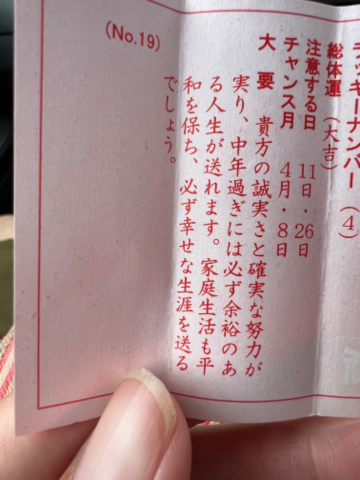 ラッキーナンバー（4）
総体運（大吉）
注意する日 11日・26日
チャンス月 4月・8日
大要 貴方の誠実さと確実な努力が
実り、中年過ぎには必ず余裕のあ
る人生が送れます。家庭生活も平
和を保ち、必ず幸せな生涯を送る
でしょう。
(No.19)